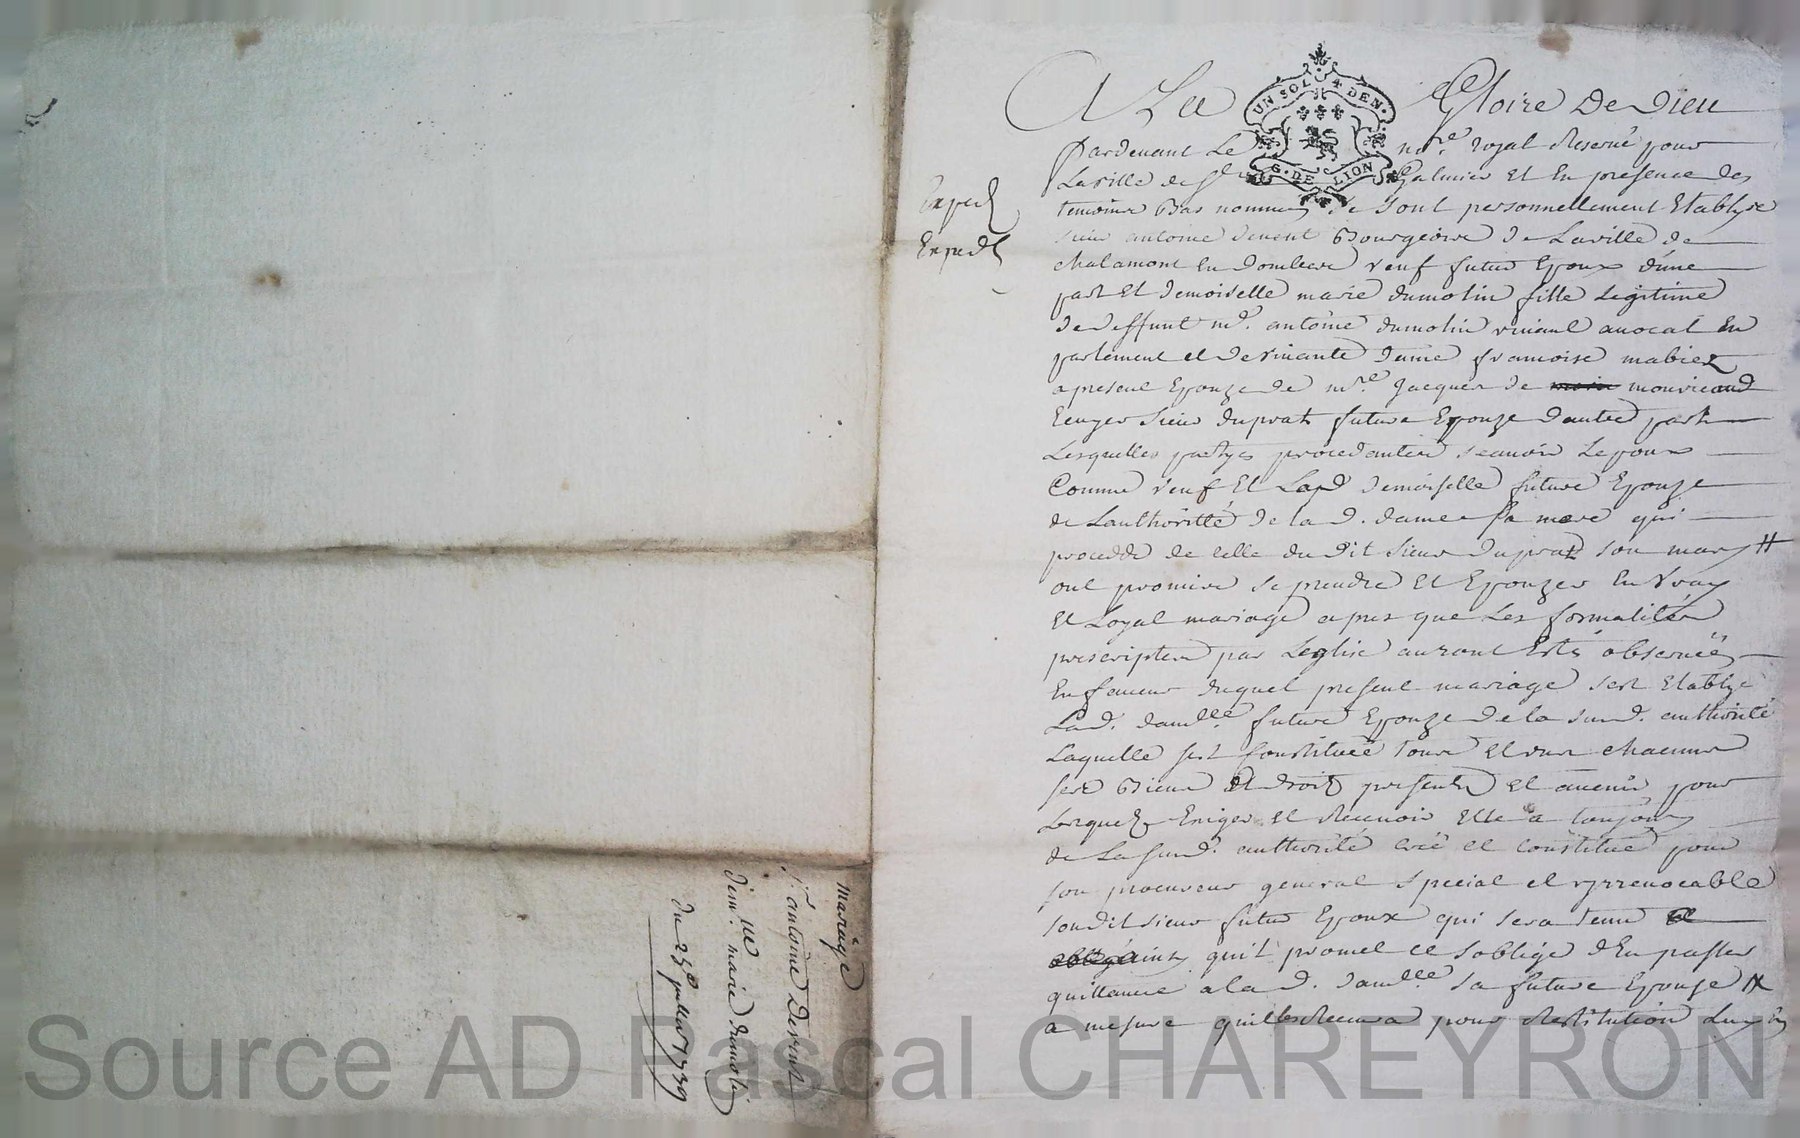 A La Gloire De Dieu
UN SOL 4 DEN.
G. DE LION
pardevant Le no.re royal Reservé pour
La ville de St Galmier Et En presence des
temoins Bas nommes Se sont personnellement Etablys
sieur antoine devent Bourgeois de La ville de
chalamont En dombes veuf futur Epoux d'une
part Et demoiselle marie dumolin fille Legitime
de deffunt m.r antoine dumolin vivant avocat En
parlement et de vivante dame francoise mabiez
a present Epouze de m.re Jacques de mouricaud
Ecuyer sieur duprat future Epouze d'autre part
Lesquelles partyes procedantes scavoir Lepoux
Comme veuf Et Lad demoiselle future Epouze
de Lauthoritté de la d. dame sa mere qui
procedde de celle du dit sieur duprat son mary #
ont promis se prendre Et Epouzer En vray
Et Loyal mariage apres que Les formalités
prescriptes par Leglise auront Esté observéés
En faveur duquel present mariage sest Etablye
La d. dam.lle future Epouze de la sus d. authorité
Laquelle sest Constituée tous et uns chacuns
ses Biens Et droits presents et avenir pour
Lesquels Exiger et Recevoir Elle a toujours
de La sus d. authorité créé et constitué pour
son procureur general special et yrrevocable
son dit sieur futur Epoux qui sera tenu
quil promet et soblige dEn passer
quittance a la d. dam.lle sa future Epouze #
a mesure quil les Recevra pour Restitution
Exped
Exped
mariage
s.r antoine Devent
dem.lle marie dumolin
du 25e juillet 1739
Source AD Pascal CHAREYRON